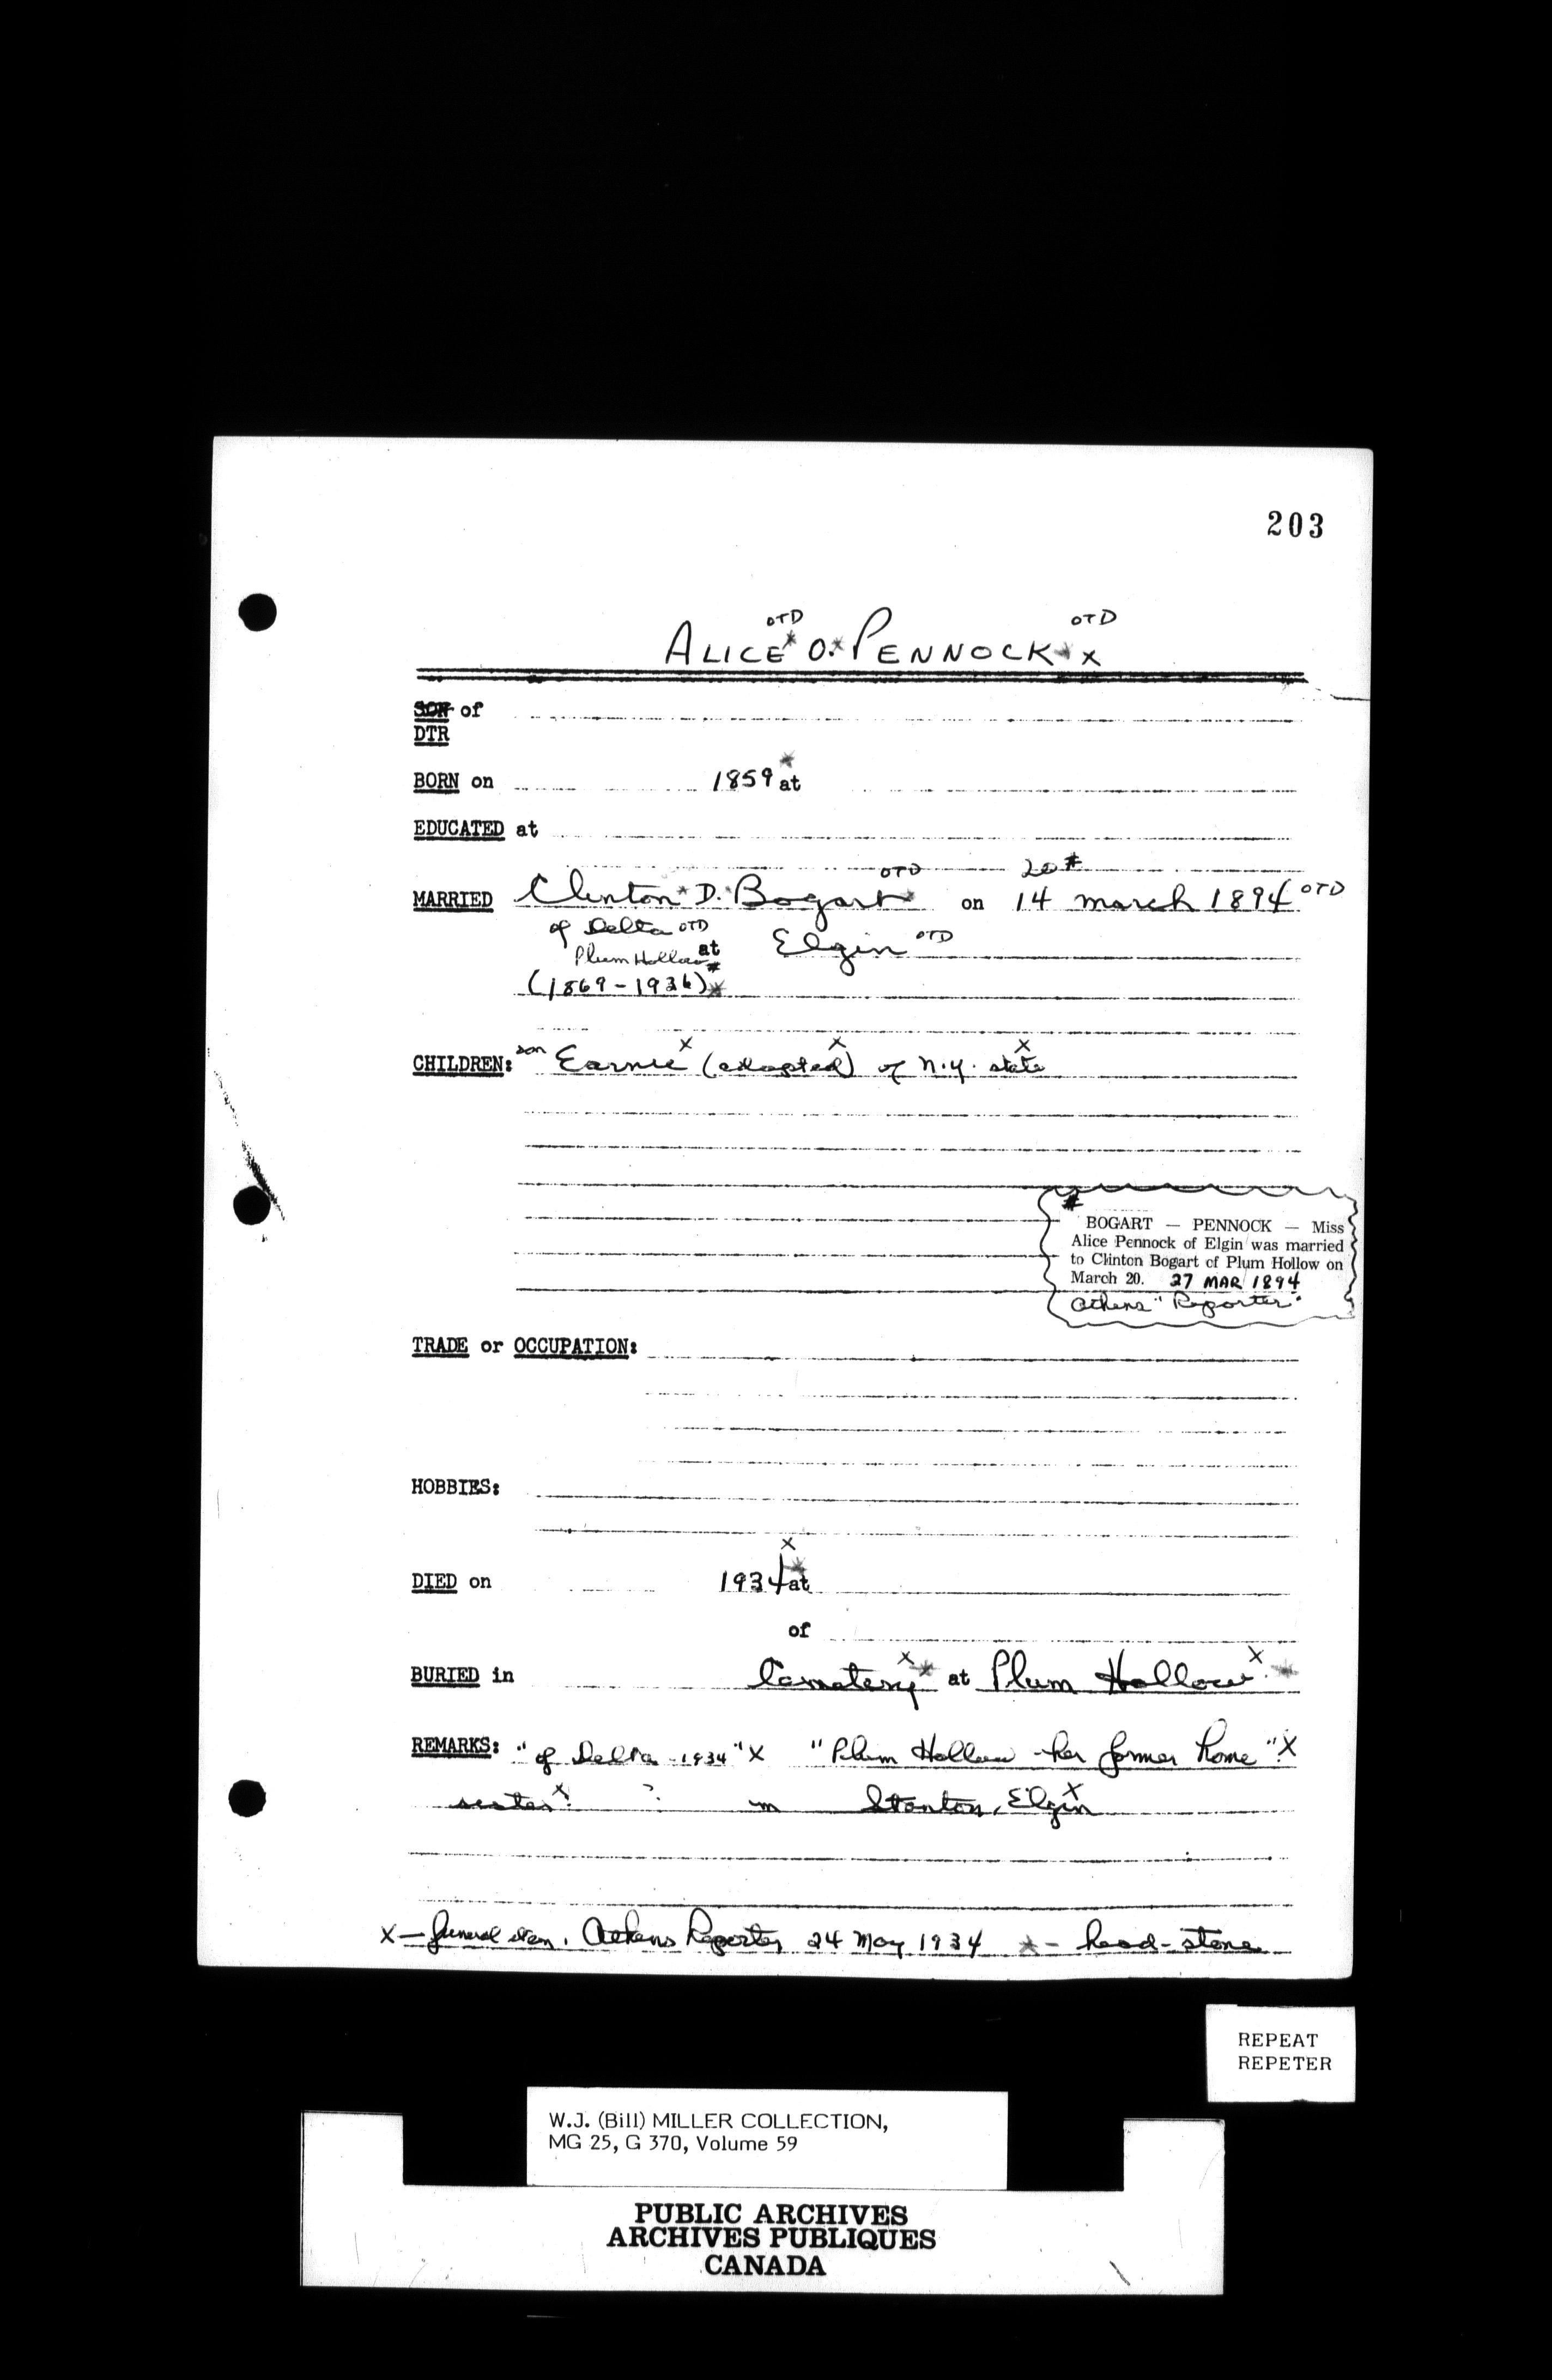 203
OTD OTD
ALICE* O.* PENNOCK * x
SON of
DTR
*
BORN on 1859 at
EDUCATED at
OTD 20#
MARRIED Clinton* D.* Bogart* on 14 march 1894 OTD
of Delta OTD at Elgin OTD
Plum Hollow #
(1869-1936)*
x x x
CHILDREN: son Earnie (adopted) of N.Y. state
#
BOGART — PENNOCK — Miss
Alice Pennock of Elgin was married
to Clinton Bogart of Plum Hollow on
March 20. 27 MAR 1894
Athens "Reporter"
TRADE or OCCUPATION:
HOBBIES:
x *
DIED on 1934 at
of
BURIED in Cemetery x* at Plum Hollow x *
REMARKS: "of Delta - 1934" x "Plum Hollow - her former home" x
sister x ? ? in Stanton, Elgin x
x — funeral item, Athens Reporter, 24 May 1934 * - head-stone
REPEAT
REPETER
W.J. (Bill) MILLER COLLECTION,
MG 25, G 370, Volume 59
PUBLIC ARCHIVES
ARCHIVES PUBLIQUES
CANADA